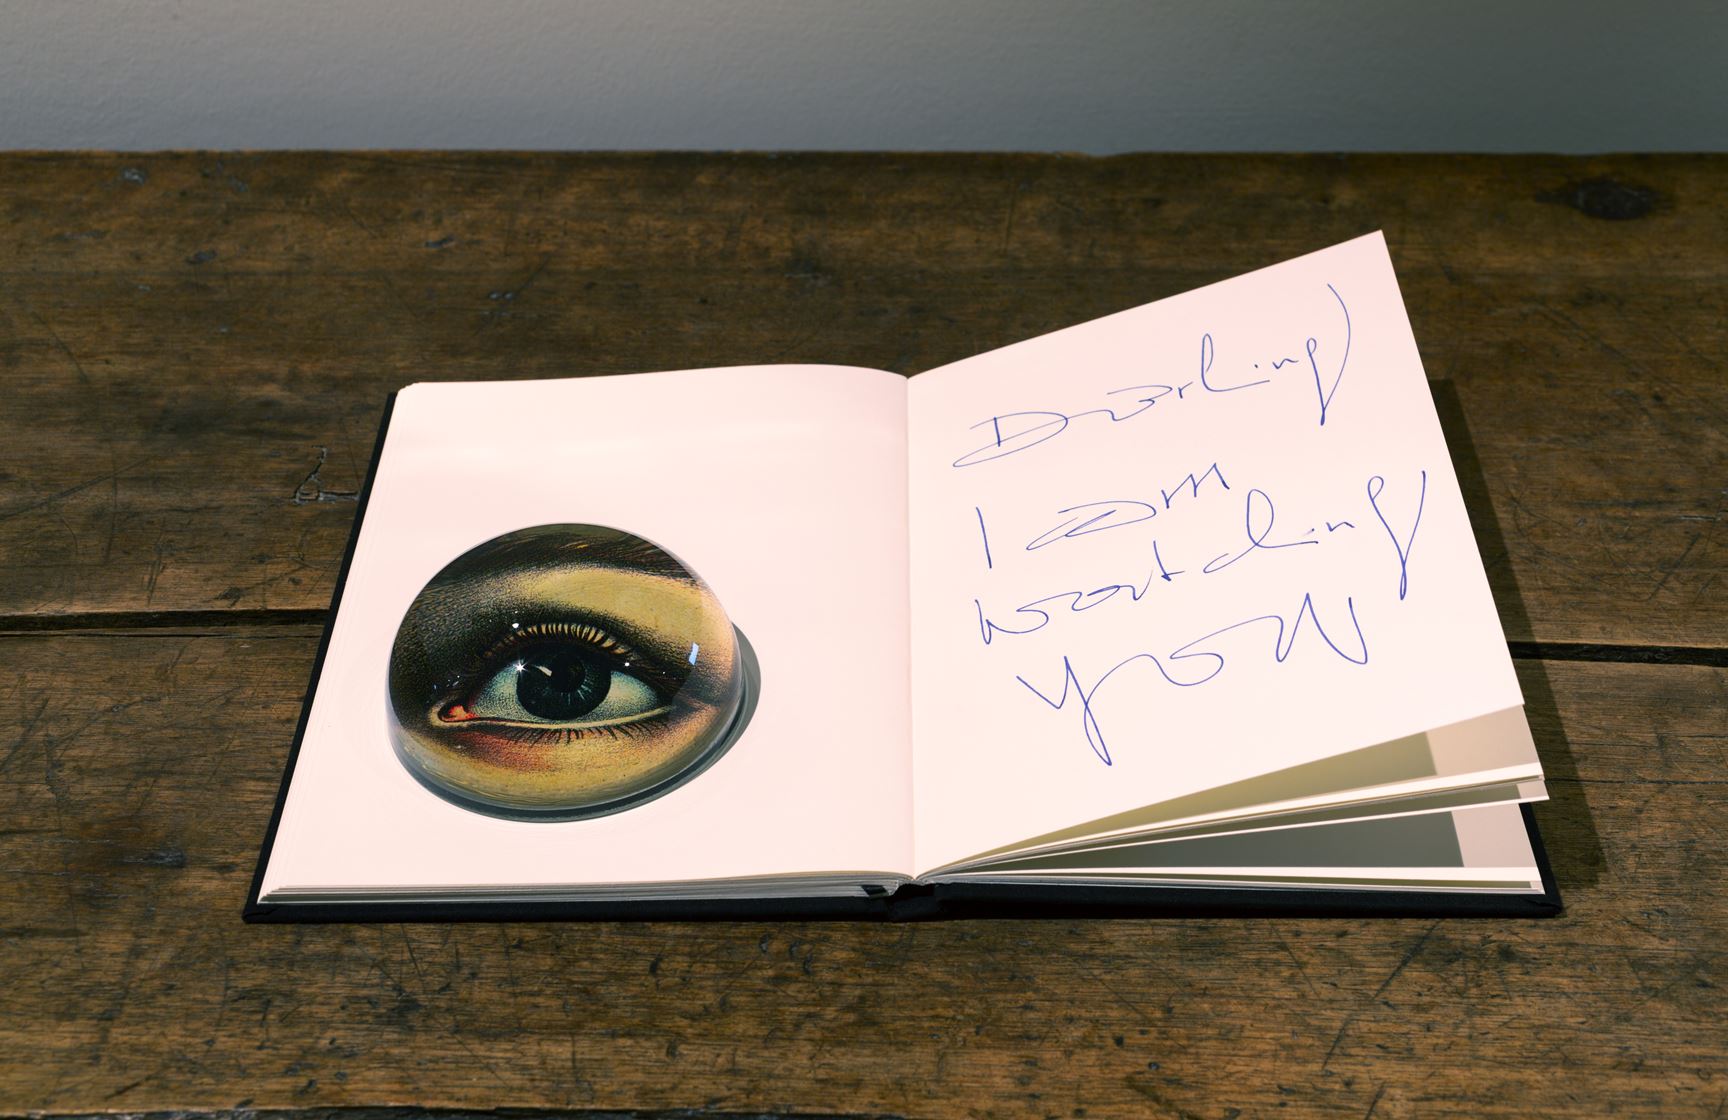 Darling)
I am
watching
you